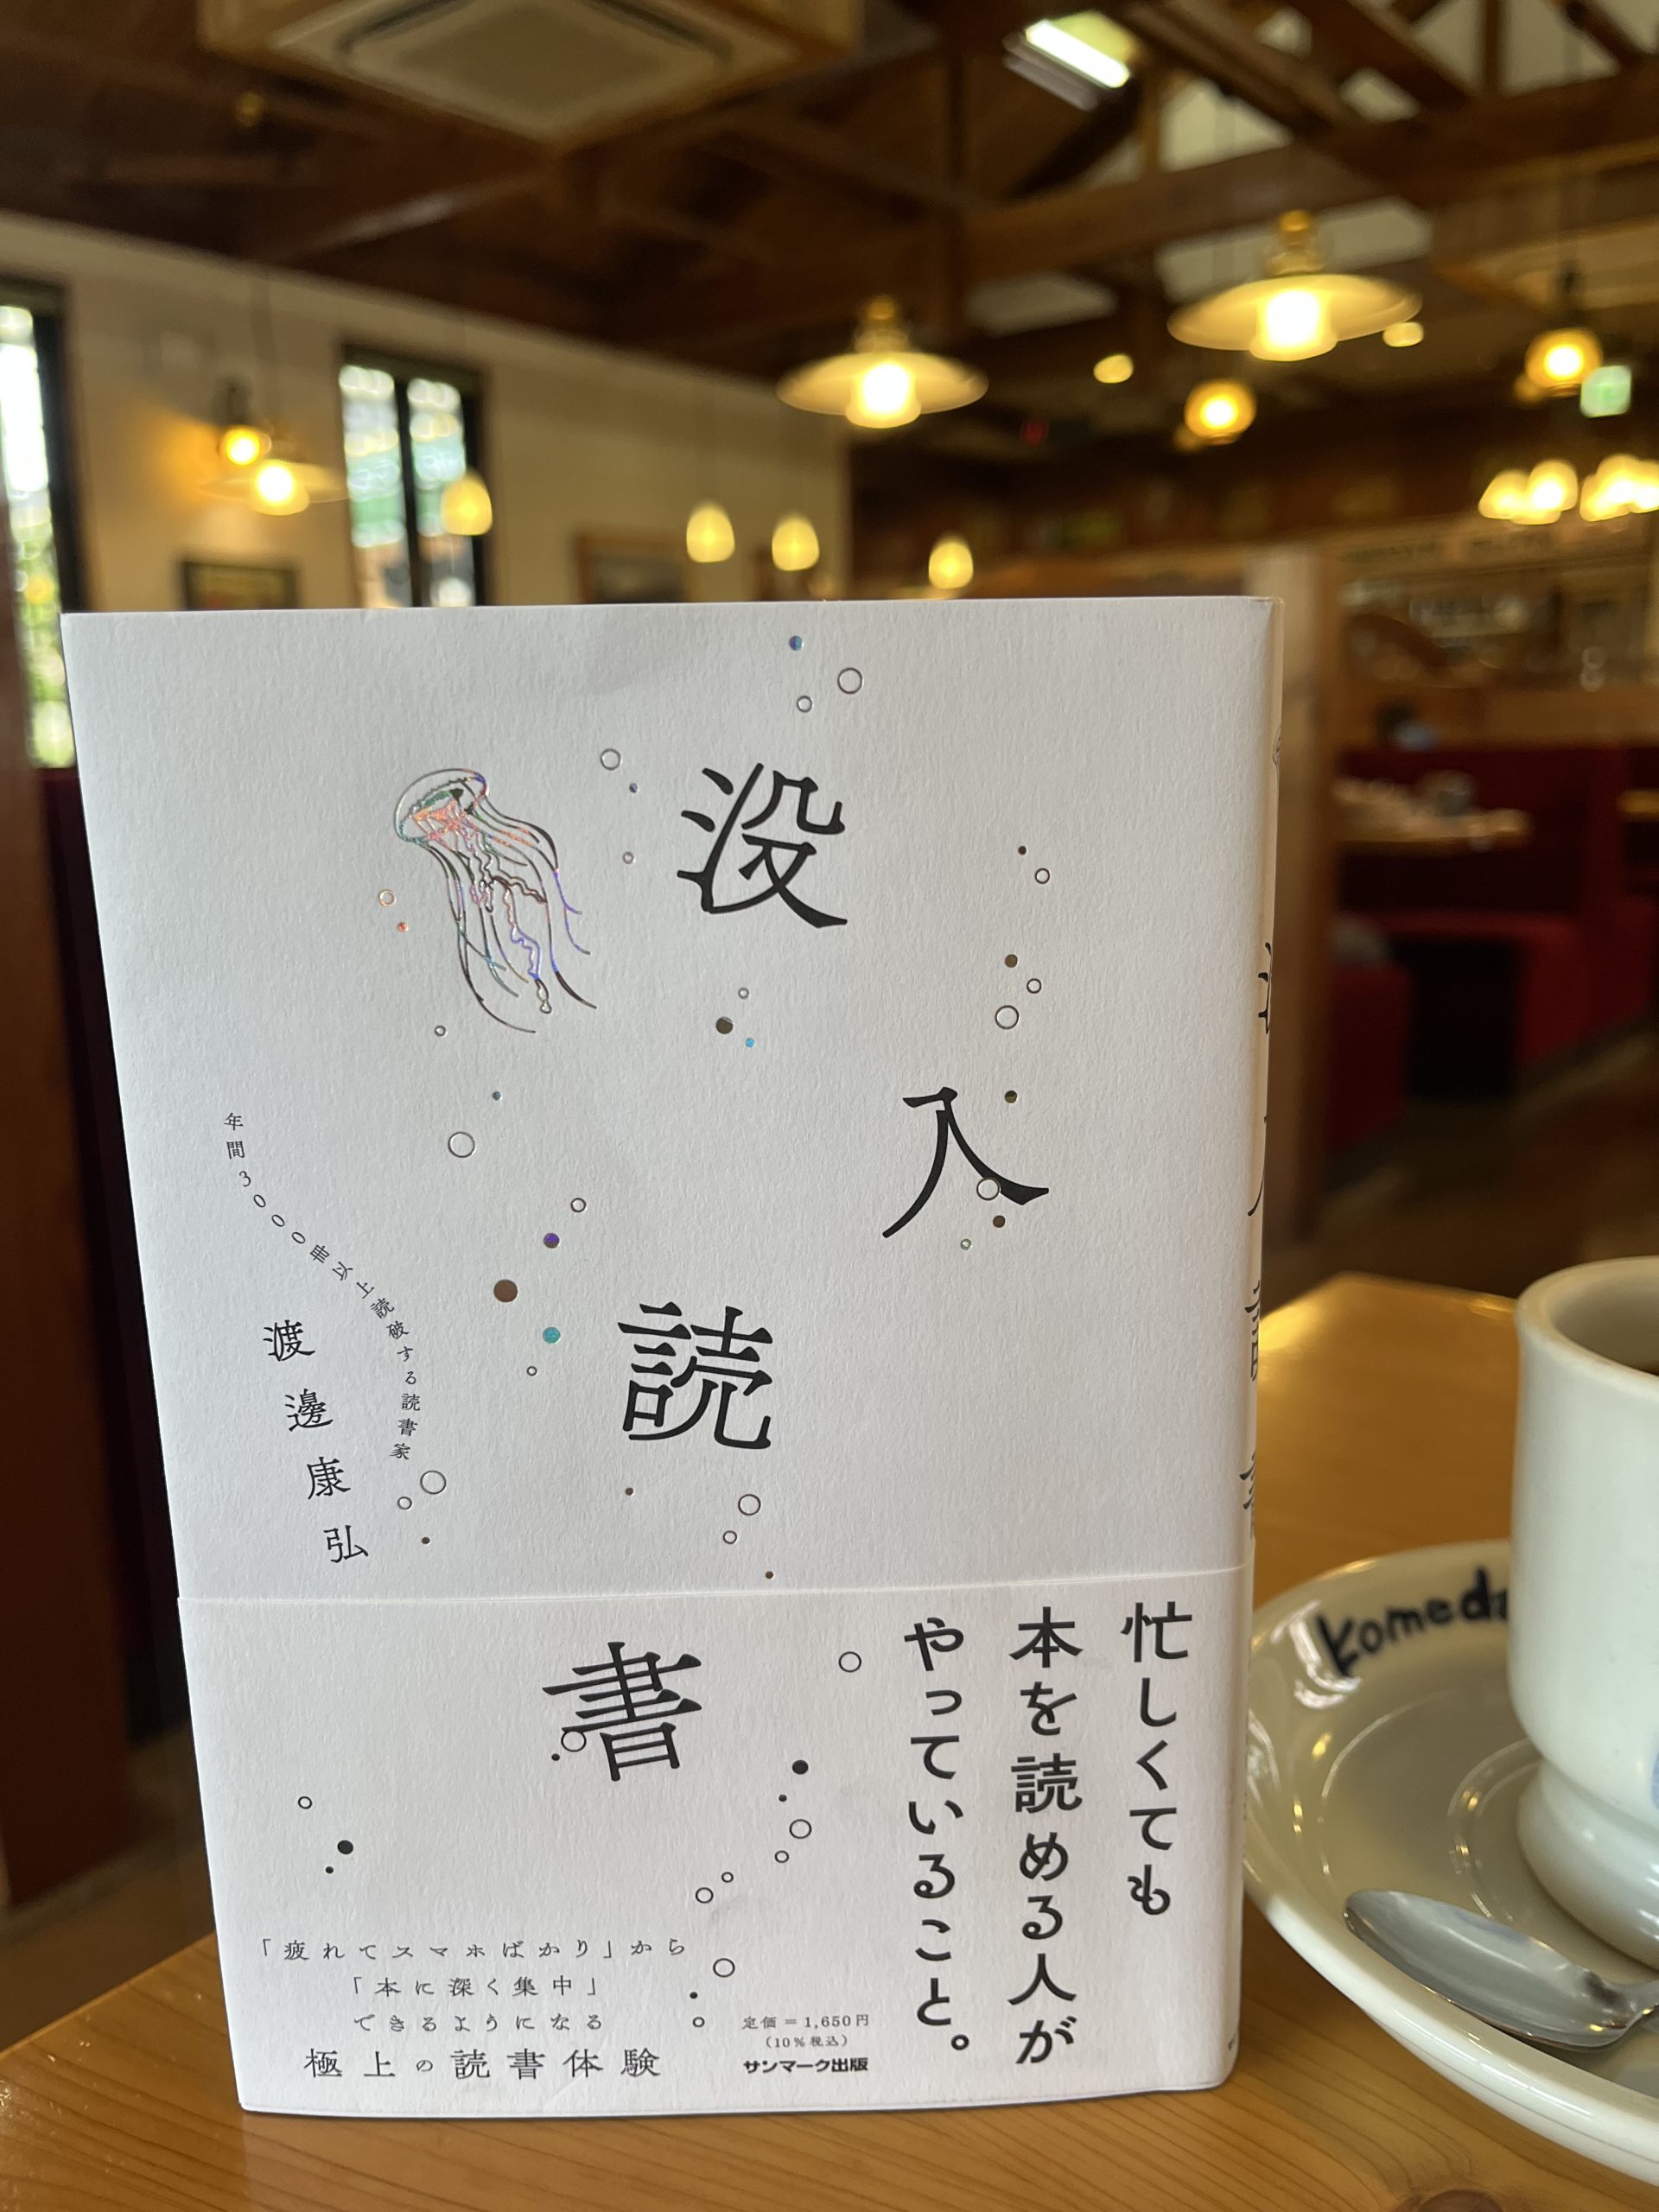 没入読書
年間3000冊以上読破する読書家
渡邊康弘
忙しくても
本を読める人が
やっていること。
「疲れてスマホばかり」から
「本に深く集中」
できるようになる
極上の読書体験
定価=1,650円
(10%税込)
サンマーク出版
komeda